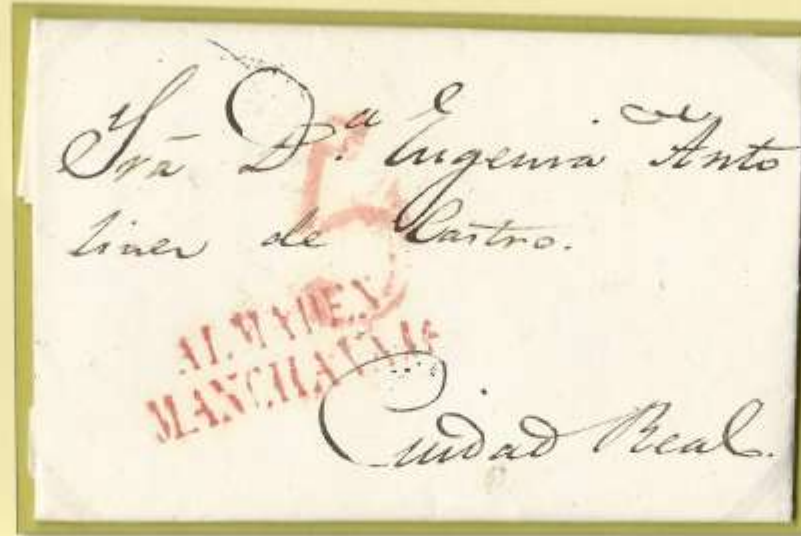 Srã D.ª Eugenia Anto
linez de Castro.
5
ALMADEN
MANCHA
Ciudad Real.